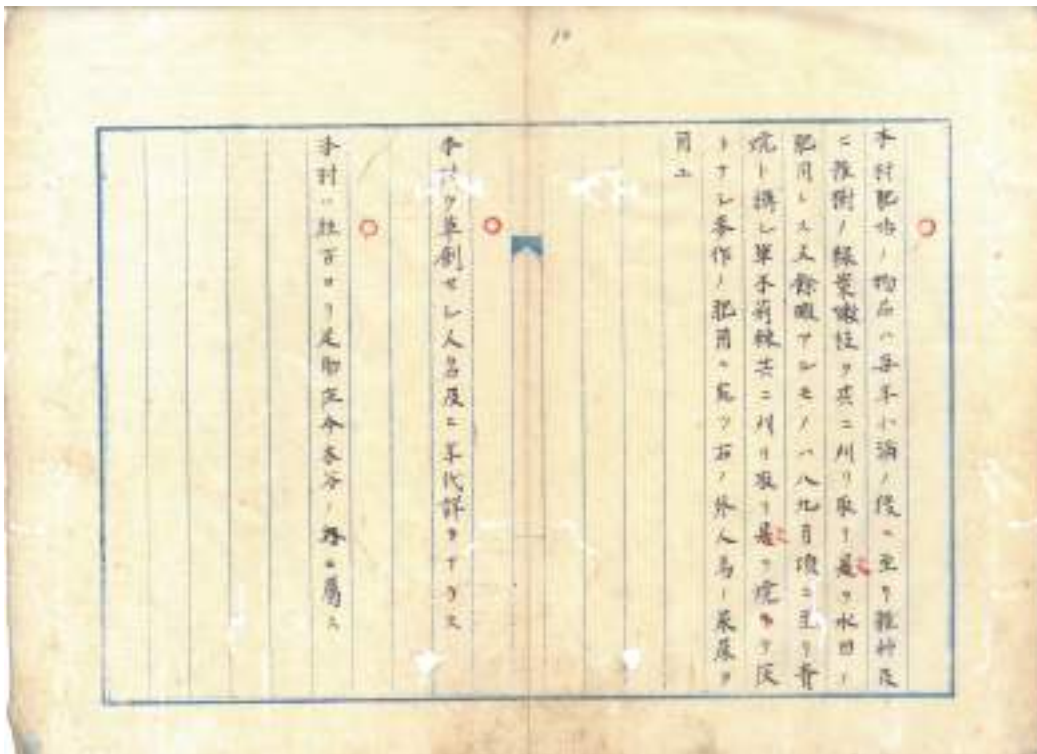 10
本村肥培ノ物品ハ毎年小満ノ後ニ至リ雑艸及
ニ雑樹ノ緑葉嫩枝ヲ共ニ刈リ取リ是ヲ水田ノ
肥用トス又餘暇アルモノハ八九月頃ニ至リ
焼ト稱シ草木共ニ刈リ取リ是ヲ焼キテ灰
トナシ麥作ノ肥用ニ充ツ右ノ外人馬ノ
用ユ
本村ヲ草創セシ人名及ヒ年代詳ナラス
本村ハ往古ヨリ足助庄ニ属ス